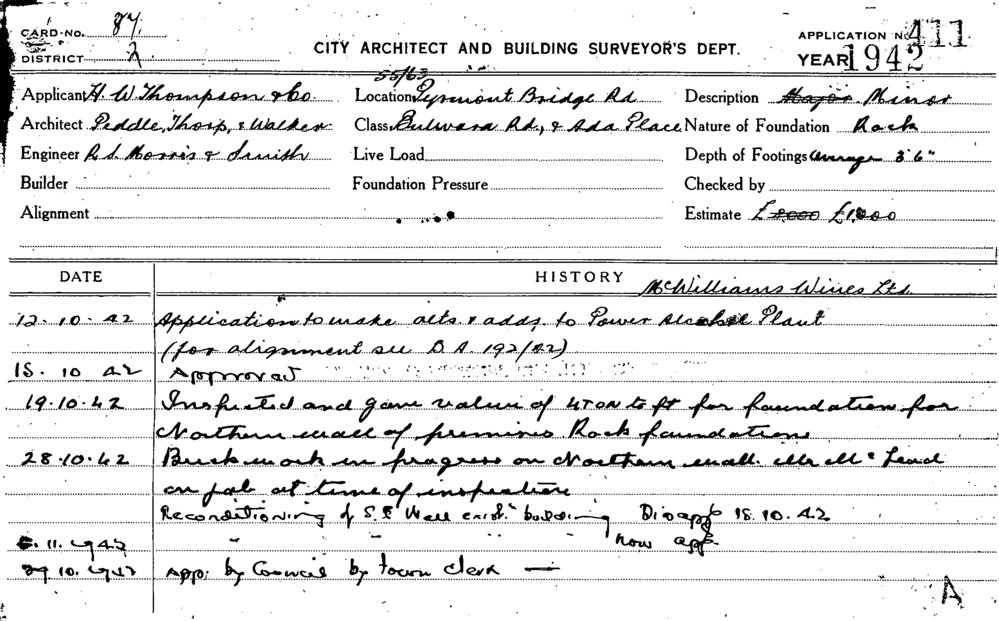 CARD-NO. 87.
DISTRICT 2
CITY ARCHITECT AND BUILDING SURVEYOR'S DEPT.
APPLICATION No 411
YEAR 1942
55/63
Applicant H. W Thompson & Co. Location Pyrmont Bridge Rd Description Major Minor
Architect Peddle, Thorp, & Walker Class Bulwara Rd., & Ada Place Nature of Foundation Rock
Engineer R. S. Morris & Smith Live Load Depth of Footings average 3'6"
Builder Foundation Pressure Checked by
Alignment Estimate £2000 £1800
DATE HISTORY McWilliams Wines Ltd.
12.10.42 Application to make alts. & adds. to Power Alcohol Plant
(for alignment see D.A. 192/42)
15.10 42 Approved
19.10.42 Inspected and gave value of 4 TON to ft for foundation for
Northern wall of premises Rock foundations
28.10.42 Brickwork in progress on Northern wall. Mr Mc Leod
on job at time of inspection
Reconditioning of S.E Wall exist. building Disapp 15.10.42
.11.1942 " " now app.
29 10.1942 App. by Council by town clerk —
A